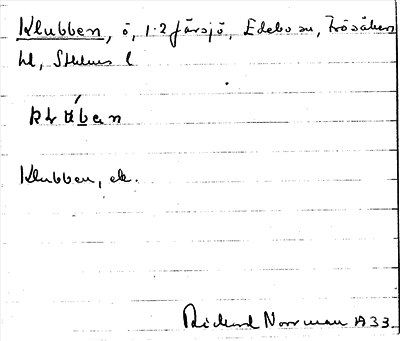 Klubben, ö, i 2 Färsjö, Edebo sn, Frösåkers
hd, Sthlms l
klúbɘn
Klubben, ek.
Rickard Norrman 1933